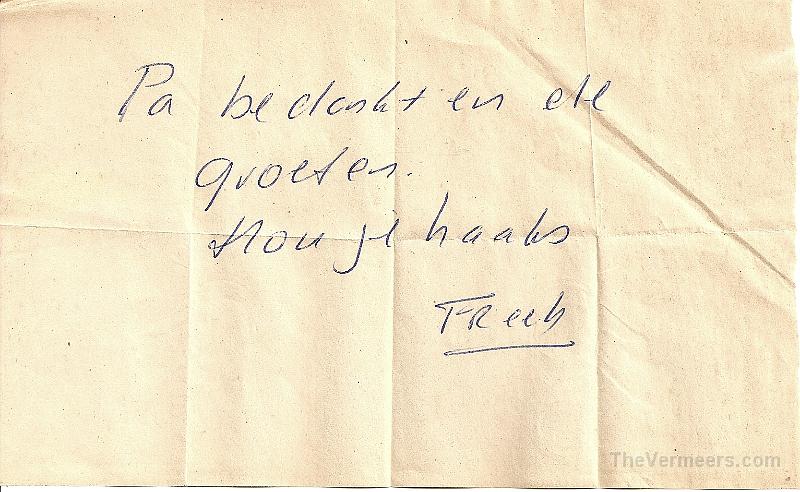 Pa bedankt en de
groeten.
Hou je haaks
Freek
TheVermeers.com